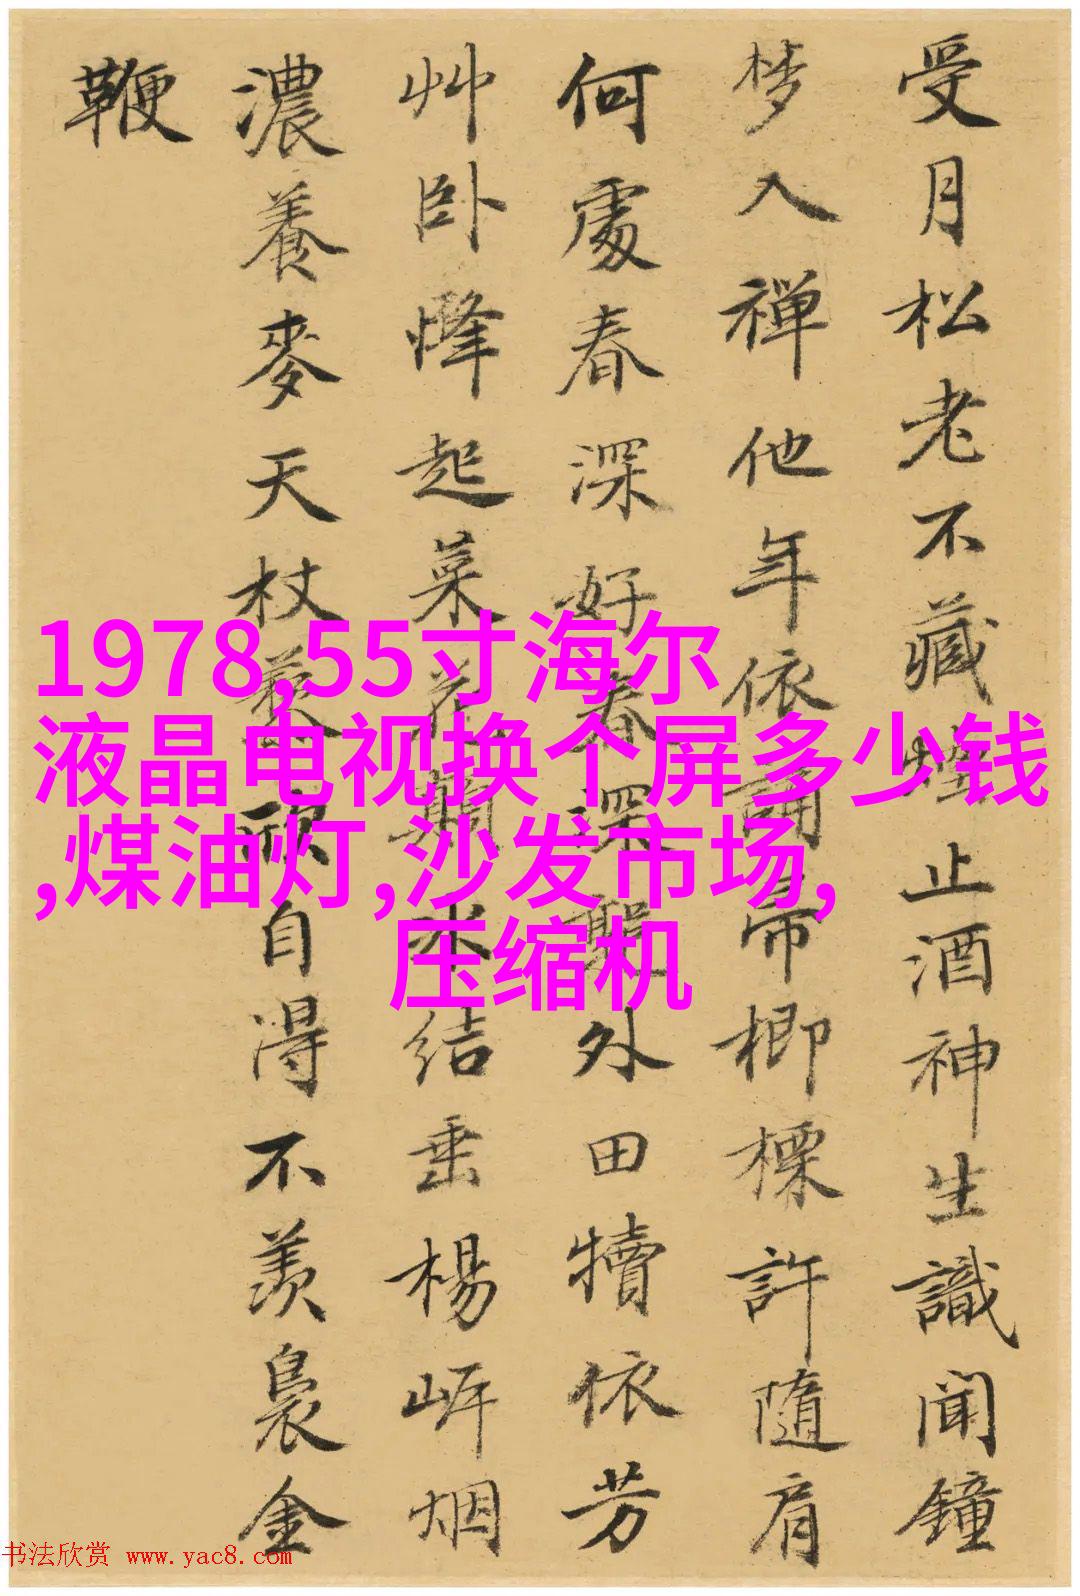 受月松老不藏烟止酒神生識聞鐘
梦入禅他年依誦帚楖檪許隨肩
何處春深好春深郭外田犢依芳
艸卧烽起菜花顛水结垂楊岍烟
濃養麥天杖藜欣自得不羡裊金
鞭
1978,55寸海尔
液晶电视换个屏多少钱
,煤油灯,沙发市场,
压缩机
书法欣赏 www.yac8.com